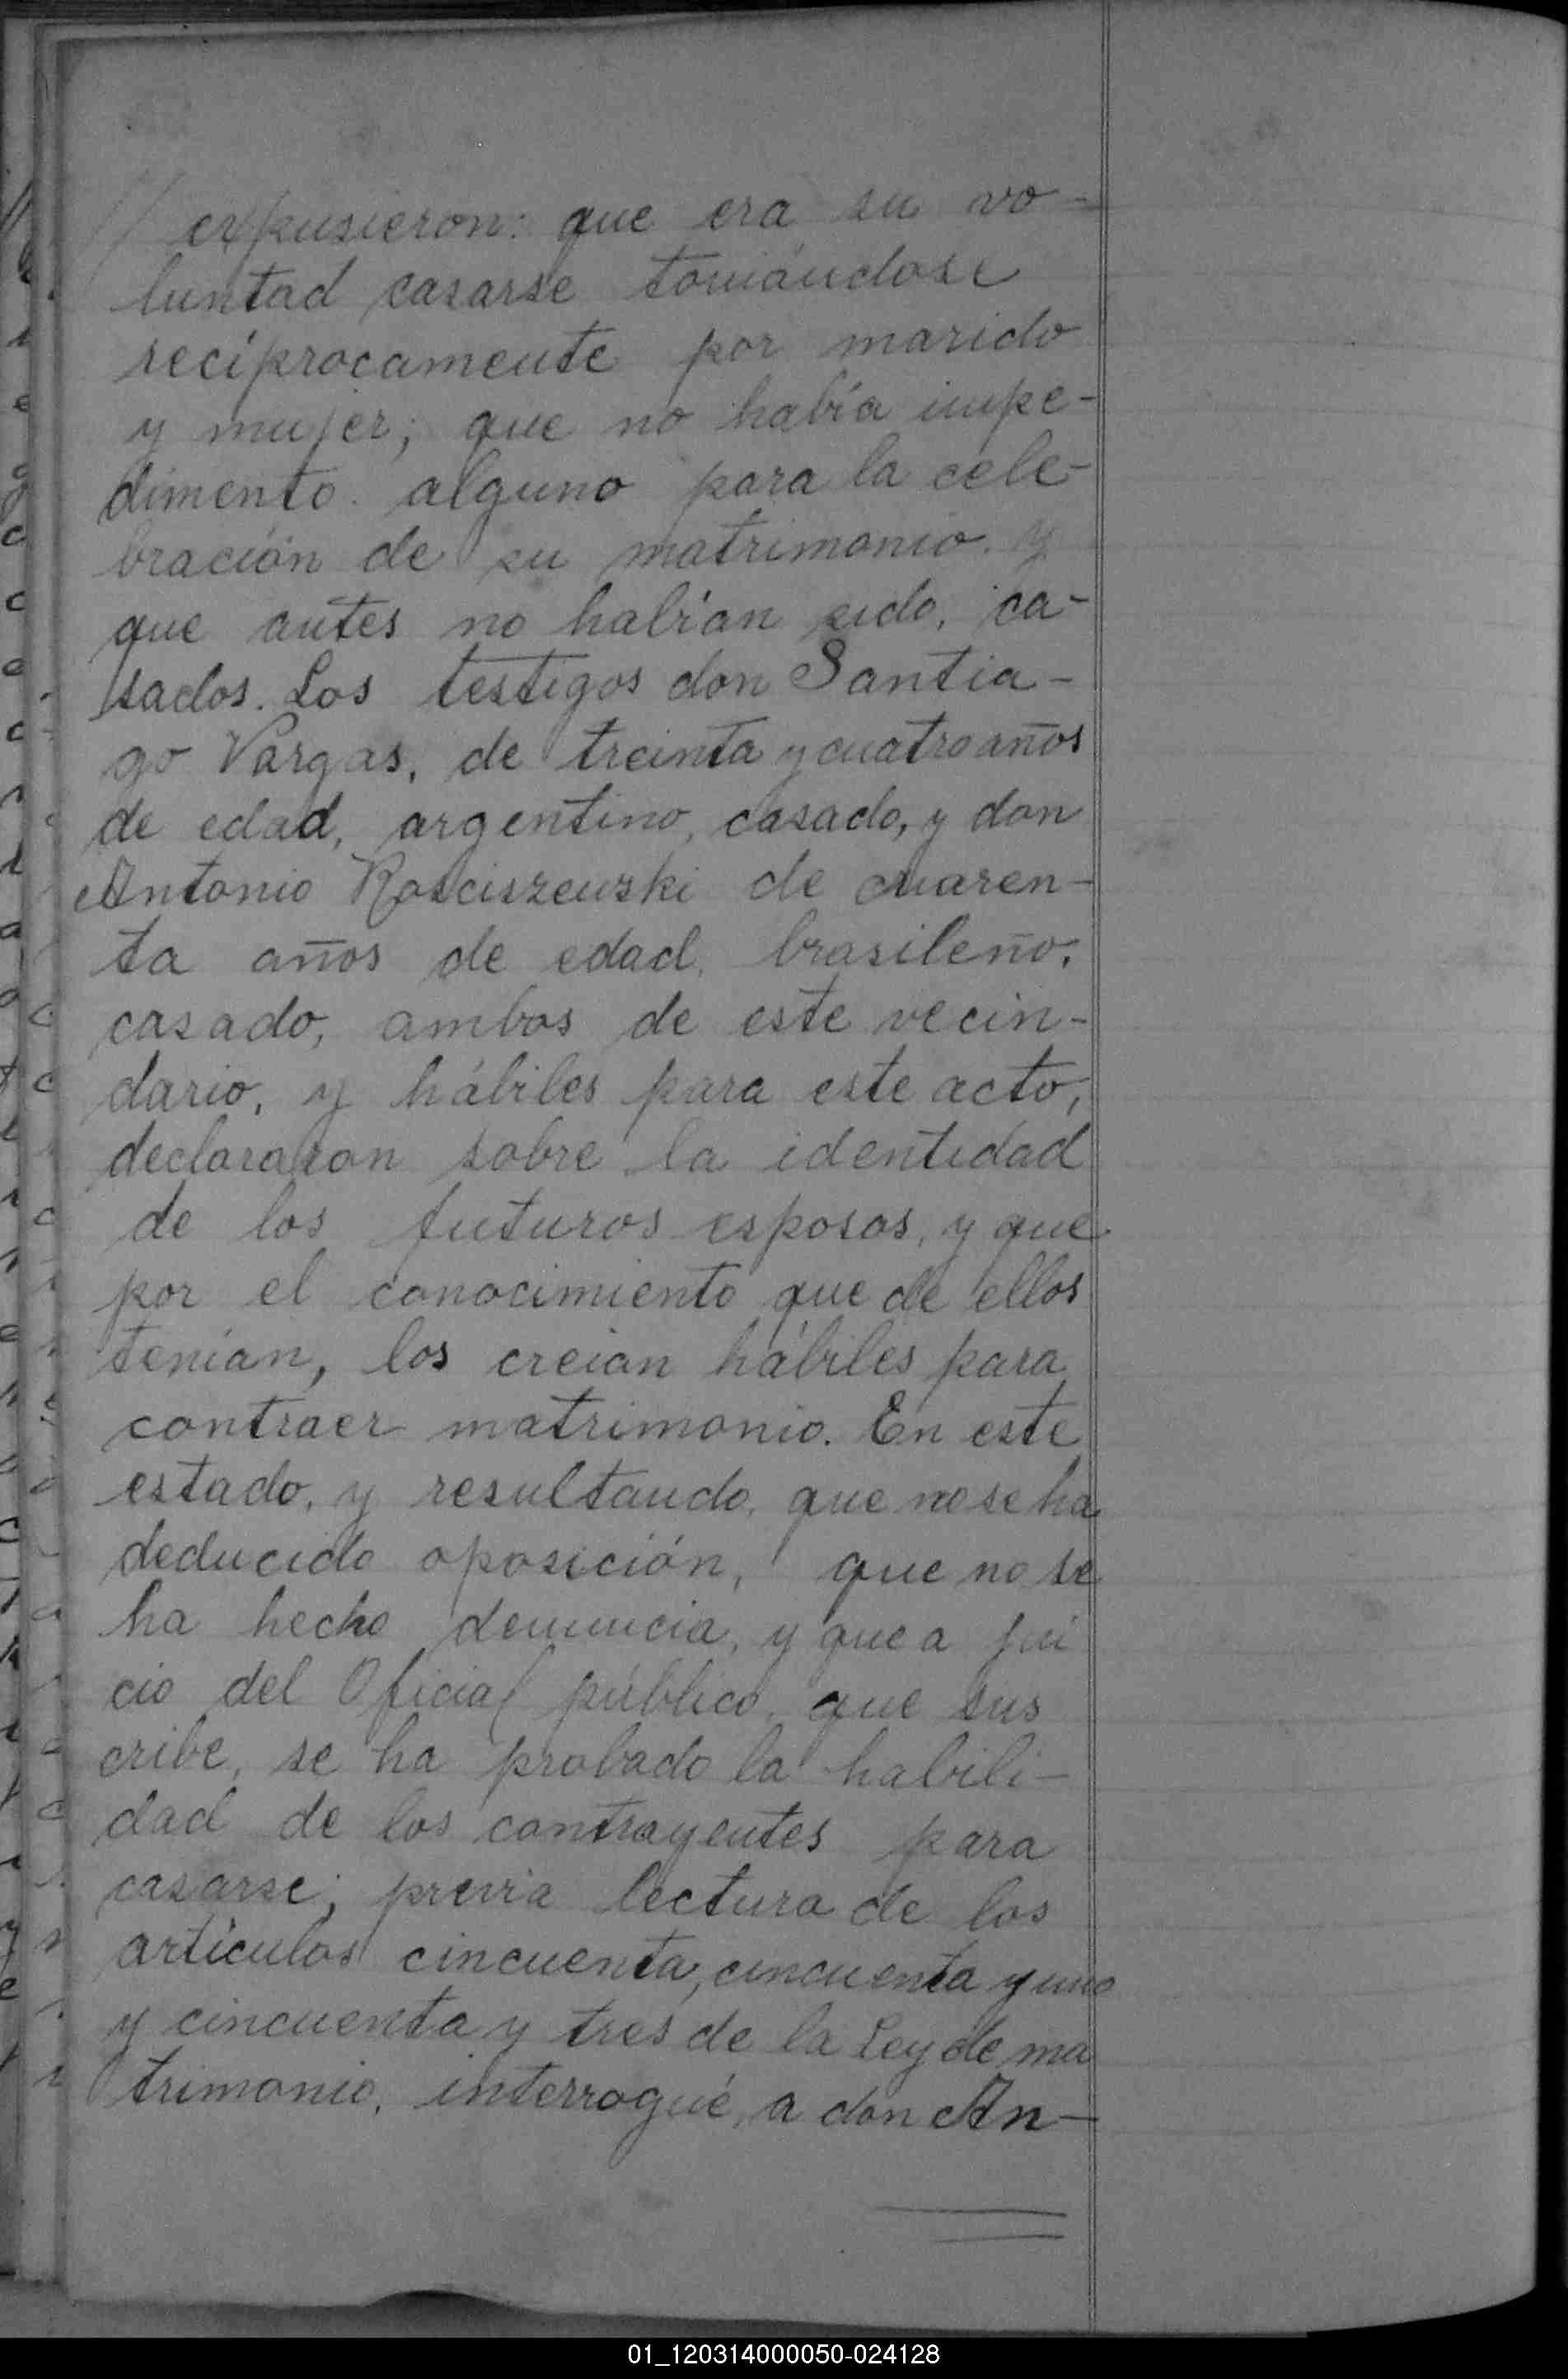 // expusieron: que era su vo-
luntad casarse tomándose
recíprocamente por marido
y mujer; que no había impe-
dimento alguno para la cele-
bración de su matrimonio y
que antes no habían sido, ca-
sados. Los testigos don Santia-
go Vargas, de treinta y cuatro años
de edad, argentino, casado, y don
Antonio Rosciszewski de cuaren-
ta años de edad, brasileño,
casado, ambos de este vecin-
dario, y hábiles para este acto,
declararon sobre la identidad
de los futuros esposos, y que
por el conocimiento que de ellos
tenían, los creían hábiles para
contraer matrimonio. En este
estado, y resultando, que no se ha
deducido oposición, que no se
ha hecho denuncia, y que a jui
cio del Oficial público, que sus
cribe, se ha probado la habili-
dad de los contrayentes para
casarse; previa lectura de los
artículos cincuenta, cincuenta y uno
y cincuenta y tres de la Ley de ma
trimonio, interrogué, a don An-
01_120314000050-024128